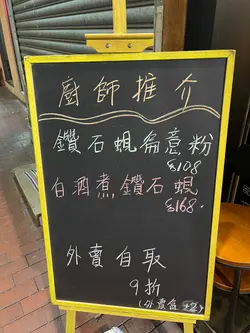 廚師推介
鑽石蜆扁意粉
$108
白酒煮鑽石蜆
$168.
外賣自取
9折
(外賣盒 +2)